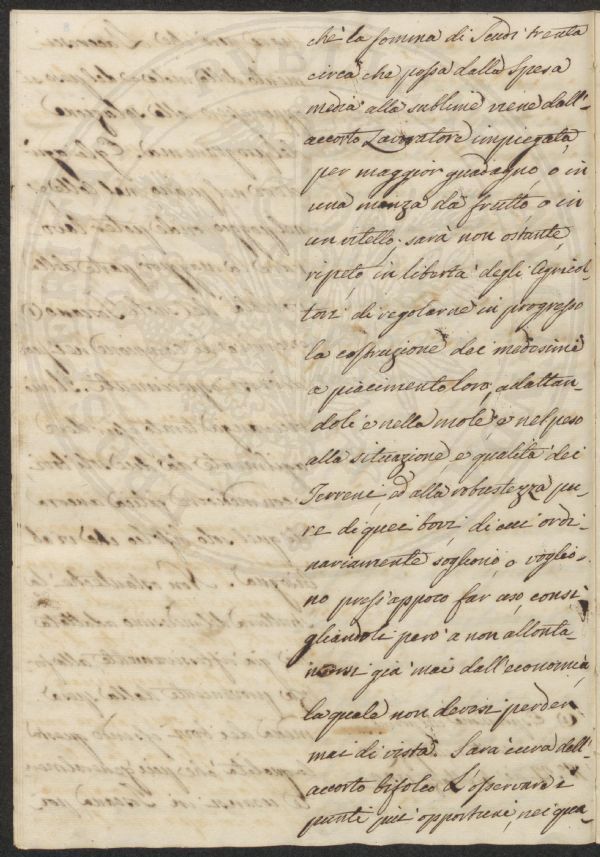 che la somma di Scudi trenta
circa che passa dalla spesa
media alla sublime viene dall'
accorto Lavoratore impiegata
per maggior guadagno o in
una manza da frutto o in
un vitello; sarà non ostante,
ripeto in libertà degli Agricol-
tori di regolarne in progresso
la costruzione dei medesimi
a piacimento loro, adattan-
doli e nella mole e nel peso
alla situazione, e qualità dei
Terreni, ed alla robustezza pu-
re di quei bovi di cui ordi-
nariamente sogliono, o voglio-
no press'appoco far uso, consi-
gliandoli però a non allonta-
narsi già mai dall'economia,
la quale non devesi perder
mai di vista. Sarà cura dell'
accorto bifolco l'osservare i
punti più opportuni, nei qua-